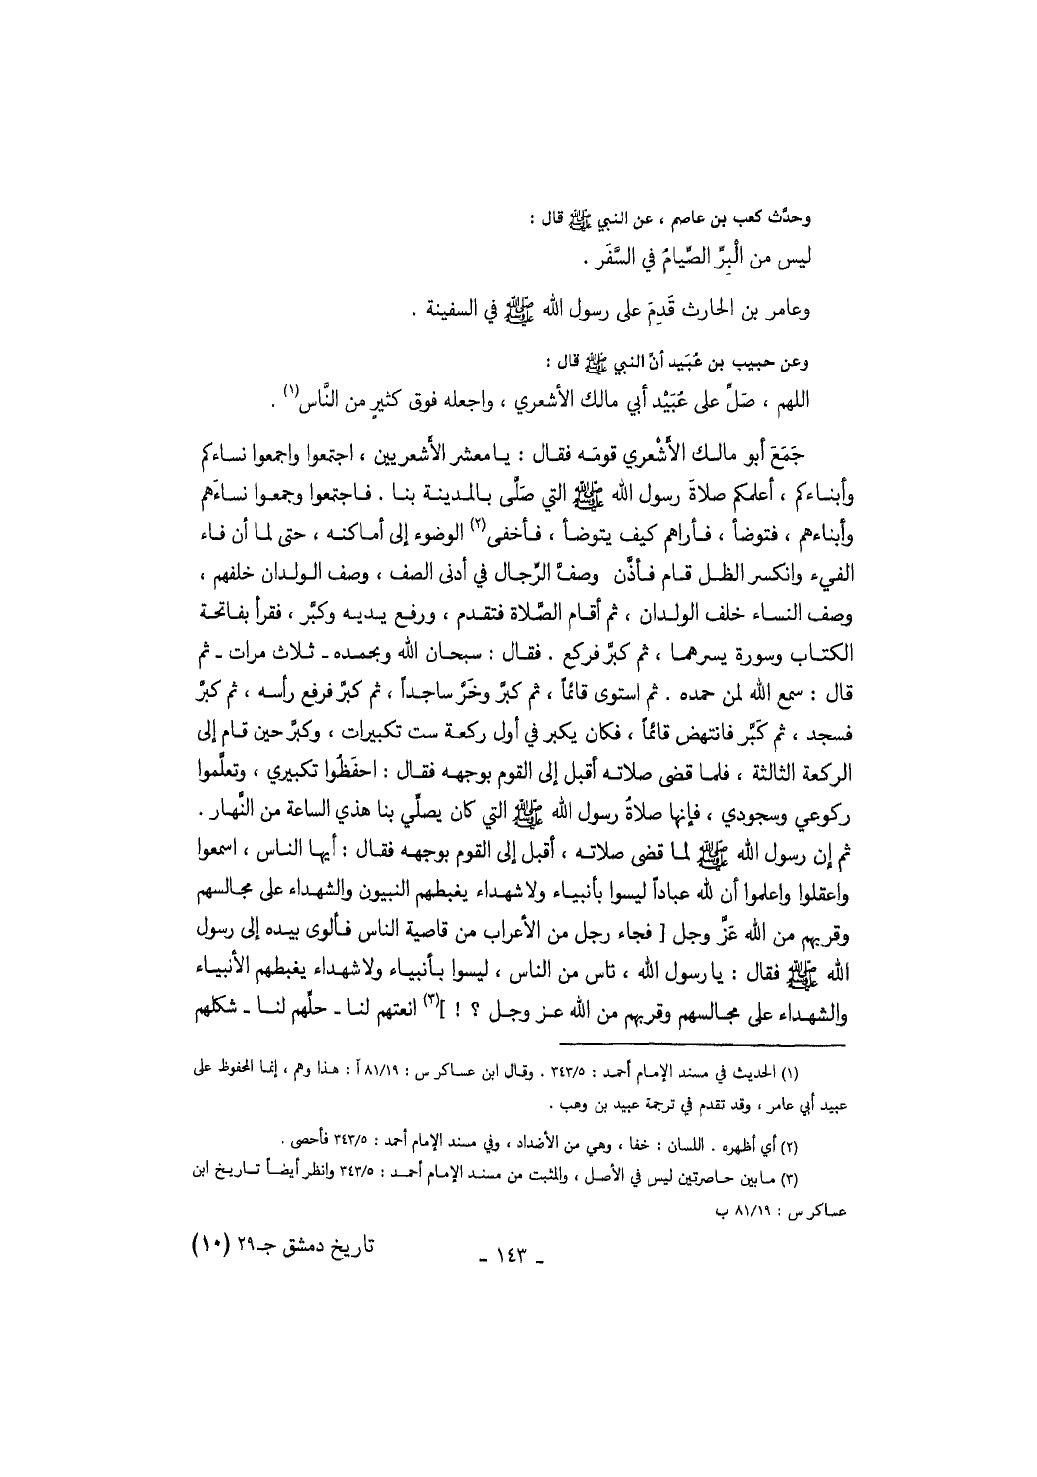 وحدَّث كعب بن عاصم ، عن النبي ﷺ قال :
ليس من الْبِرِّ الصِّيامُ في السَّفَر .
وعامر بن الحارث قَدِمَ على رسول الله ﷺ في السفينة .
وعن حبيب بن عُبَيد أنَّ النبي ﷺ قال :
اللهم ، صَلِّ على عُبَيْد أبي مالك الأشعري ، واجعله فوق كثيرٍ من النَّاس(١) .
جَمَعَ أبو مالك الأَشْعري قومَه فقال : يا معشر الأشعريين ، اجتمعوا واجمعوا نساءكم
وأبناءكم ، أعلمكم صلاةَ رسول الله ﷺ التي صَلَّى بالمدينة بنا . فاجتمعوا وجمعوا نساءَهم
وأبناءهم ، فتوضأ ، فأراهم كيف يتوضأ ، فأخفى(٢) الوضوء إلى أماكنه ، حتى لما أن فاء
الفيء وانكسر الظل قام فأذَّن وصفَّ الرِّجال في أدنى الصف ، وصف الولدان خلفهم ،
وصف النساء خلف الولدان ، ثم أقام الصَّلاة فتقدم ، ورفع يديه وكبَّر ، فقرأ بفاتحة
الكتاب وسورة يسرهما ، ثم كبرَّ فركع . فقال : سبحان الله وبحمده - ثلاث مرات - ثم
قال : سمع الله لمن حمده . ثم استوى قائماً ، ثم كبرَّ وخَرَّ ساجداً ، ثم كبرَّ فرفع رأسه ، ثم كبرَّ
فسجد ، ثم كَبَّر فانتهض قائماً ، فكان يكبر في أول ركعة ست تكبيرات ، وكبرَّ حين قام إلى
الركعة الثالثة ، فلما قضى صلاته أقبل إلى القوم بوجهه فقال : احفَظُوا تكبيري ، وتعلَّموا
ركوعي وسجودي ، فإنها صلاةُ رسول الله ﷺ التي كان يصلِّي بنا هذي الساعة من النَّهار .
ثم إن رسول الله ﷺ لما قضى صلاته ، أقبل إلى القوم بوجهه فقال : أيها الناس ، اسمعوا
واعقلوا واعلموا أن لله عباداً ليسوا بأنبياء ولا شهداء يغبطهم النبيون والشهداء على مجالسهم
وقربهم من الله عَزَّ وجل [ فجاء رجل من الأعراب من قاصية الناس فألوى بيده إلى رسول
الله ﷺ فقال : يا رسول الله ، ناس من الناس ، ليسوا بأنبياء ولا شهداء يغبطهم الأنبياء
والشهداء على مجالسهم وقربهم من الله عز وجل ؟ ! ](٣) انعتهم لنا - حلِّهم لنا - شكلهم
(١) الحديث في مسند الإمام أحمد : ٣٤٣/٥ . وقال ابن عساكر س : ٨١/١٩ آ : هذا وهم ، إنما المحفوظ على
عبيد أبي عامر ، وقد تقدم في ترجمة عبيد بن وهب .
(٢) أي أظهره . اللسان : خفا ، وهي من الأضداد ، وفي مسند الإمام أحمد : ٣٤٣/٥ فأحصى .
(٣) ما بين حاصرتين ليس في الأصل ، والمثبت من مسند الإمام أحمد : ٣٤٣/٥ وانظر أيضاً تاريخ ابن
عساكر س : ٨١/١٩ ب
- ١٤٣ - تاريخ دمشق جـ٢٩ (١٠)